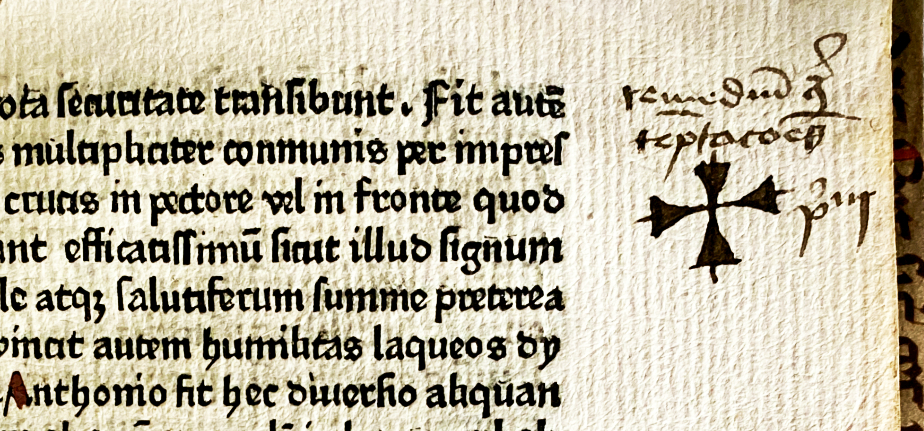 ota securitate transibunt . Fit autē
s multipliciter conmunis per impres
crucis in pectore vel in fronte quod
unt efficatissimū sicut illud signum
le atqꝫ salutiferum summe preterea
vincit autem humilitas laqueos dy
Anthonio fit hec diuersio aliquan
remediū
teptacões